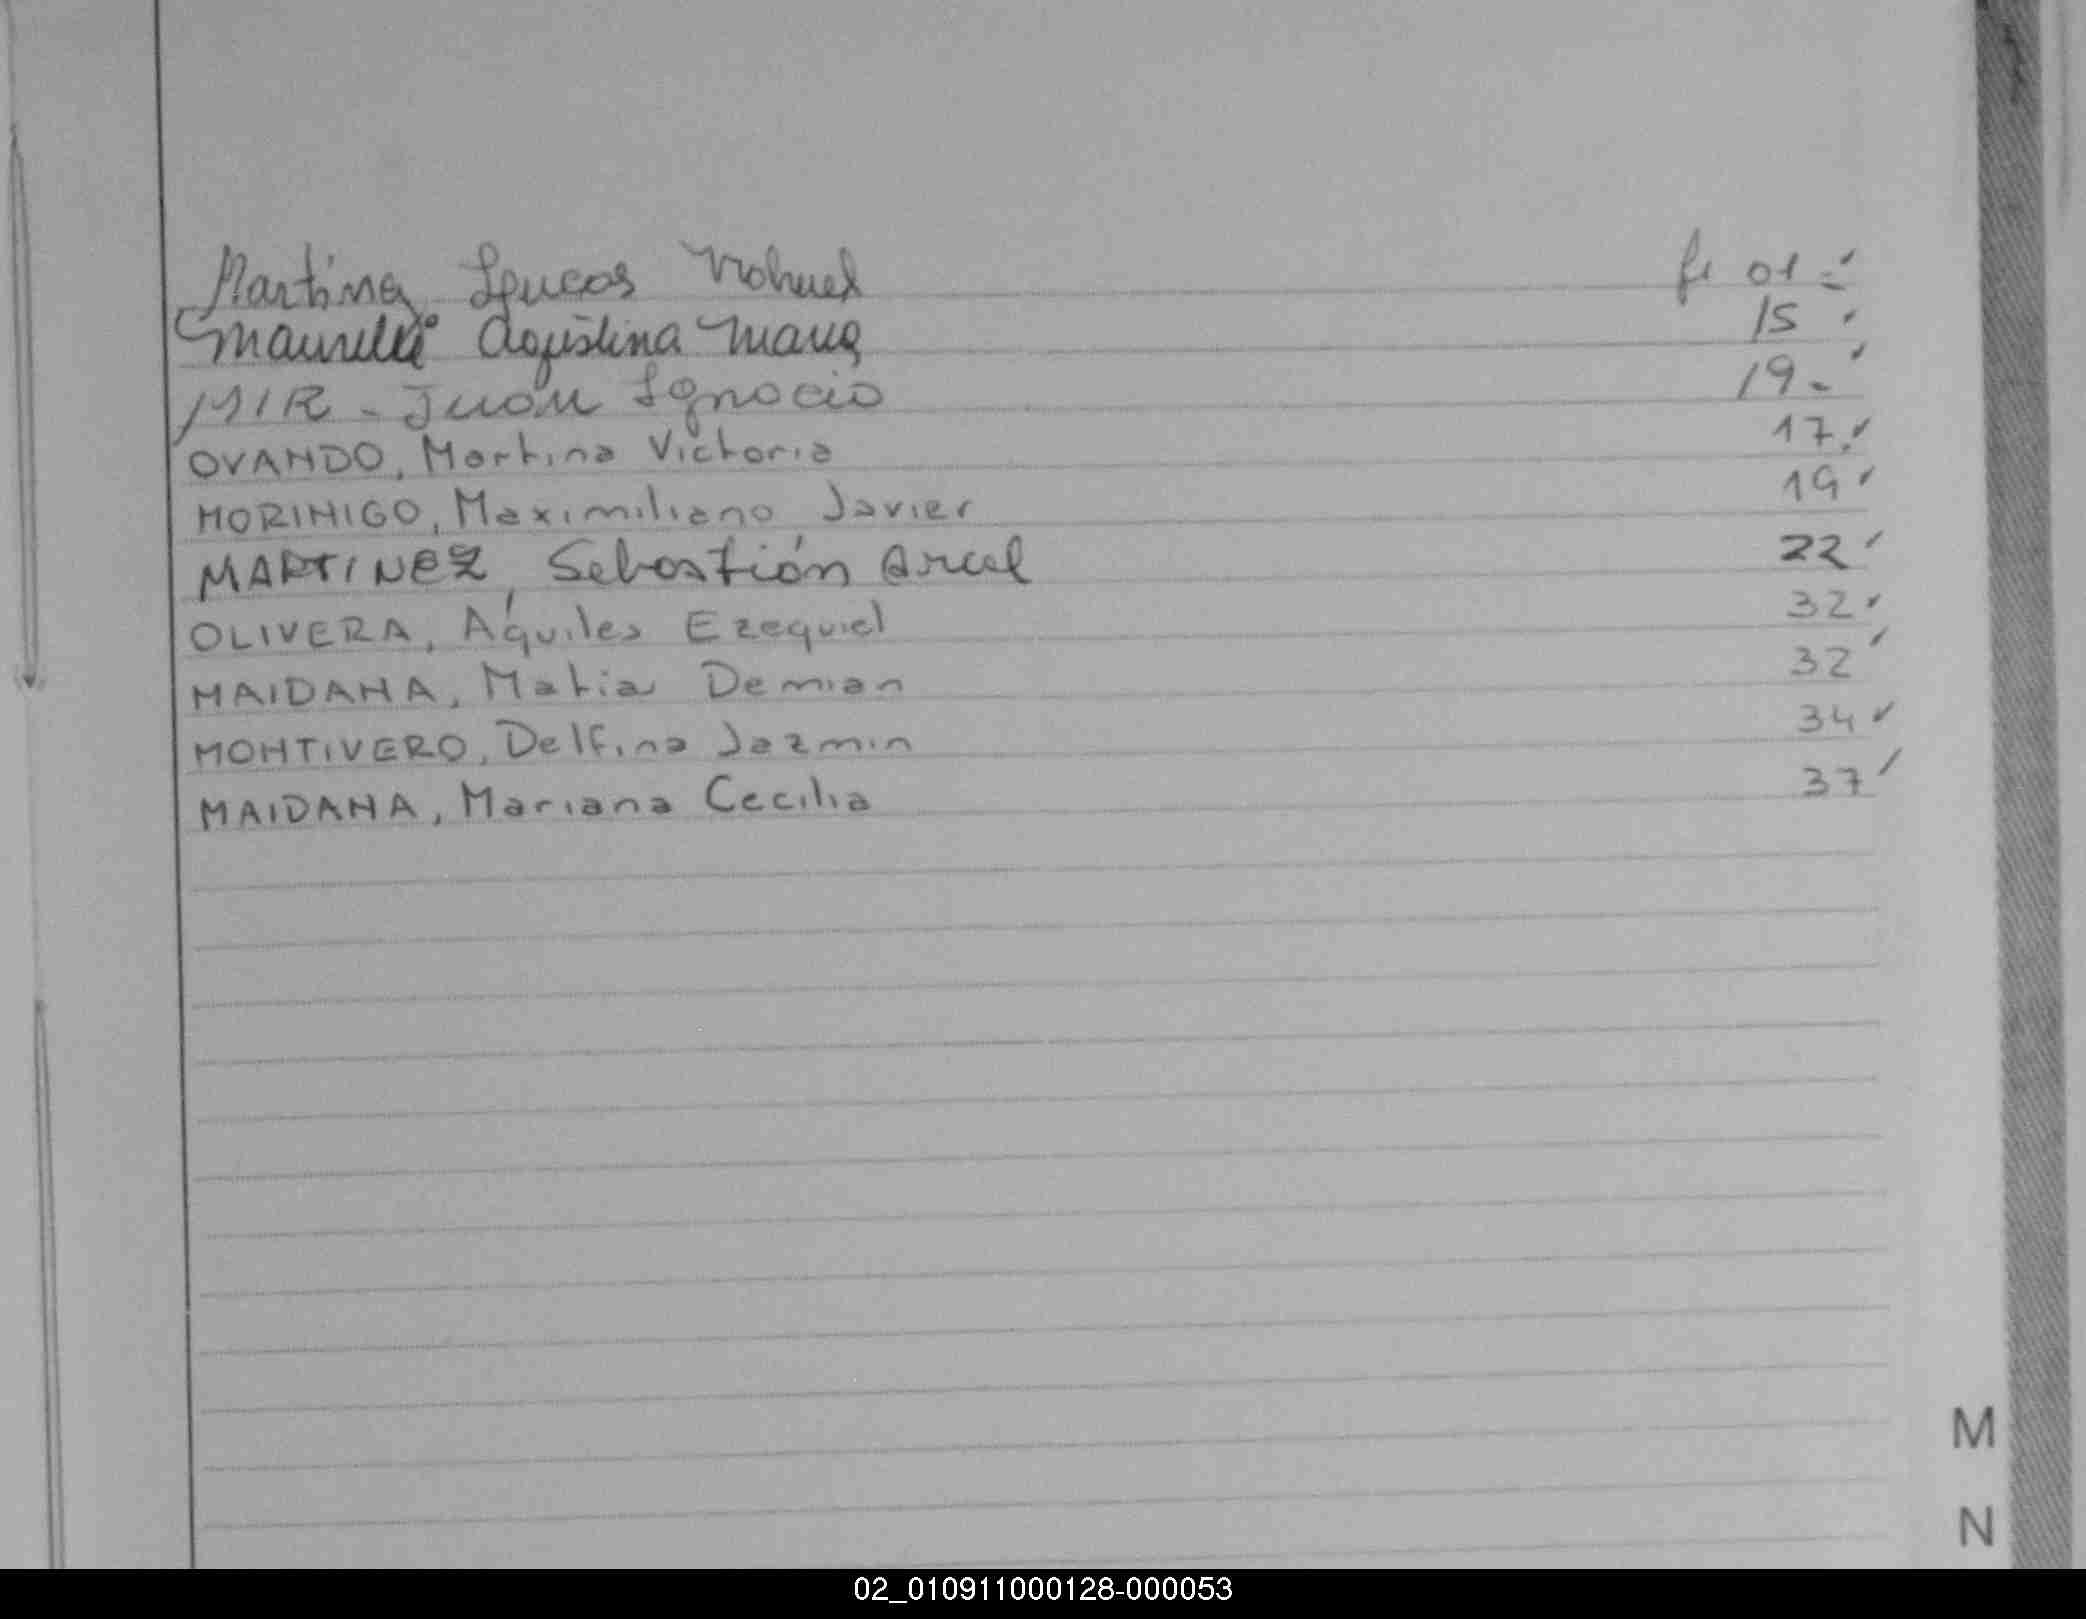 Martinez Lucas Nahuel fº 01 -
Agustina Maria 15
MIR - Juan Ignacio 19 -
OVANDO, Martina Victoria 17.
MORINIGO, Maximiliano Javier 19
MARTINEZ, Sebastián 22
OLIVERA, Áquiles Ezequiel 32
MAIDANA, Matia Demian 32
MONTIVERO, Delfina Jazmin 34
MAIDANA, Mariana Cecilia 37
M
N
02_010911000128-000053